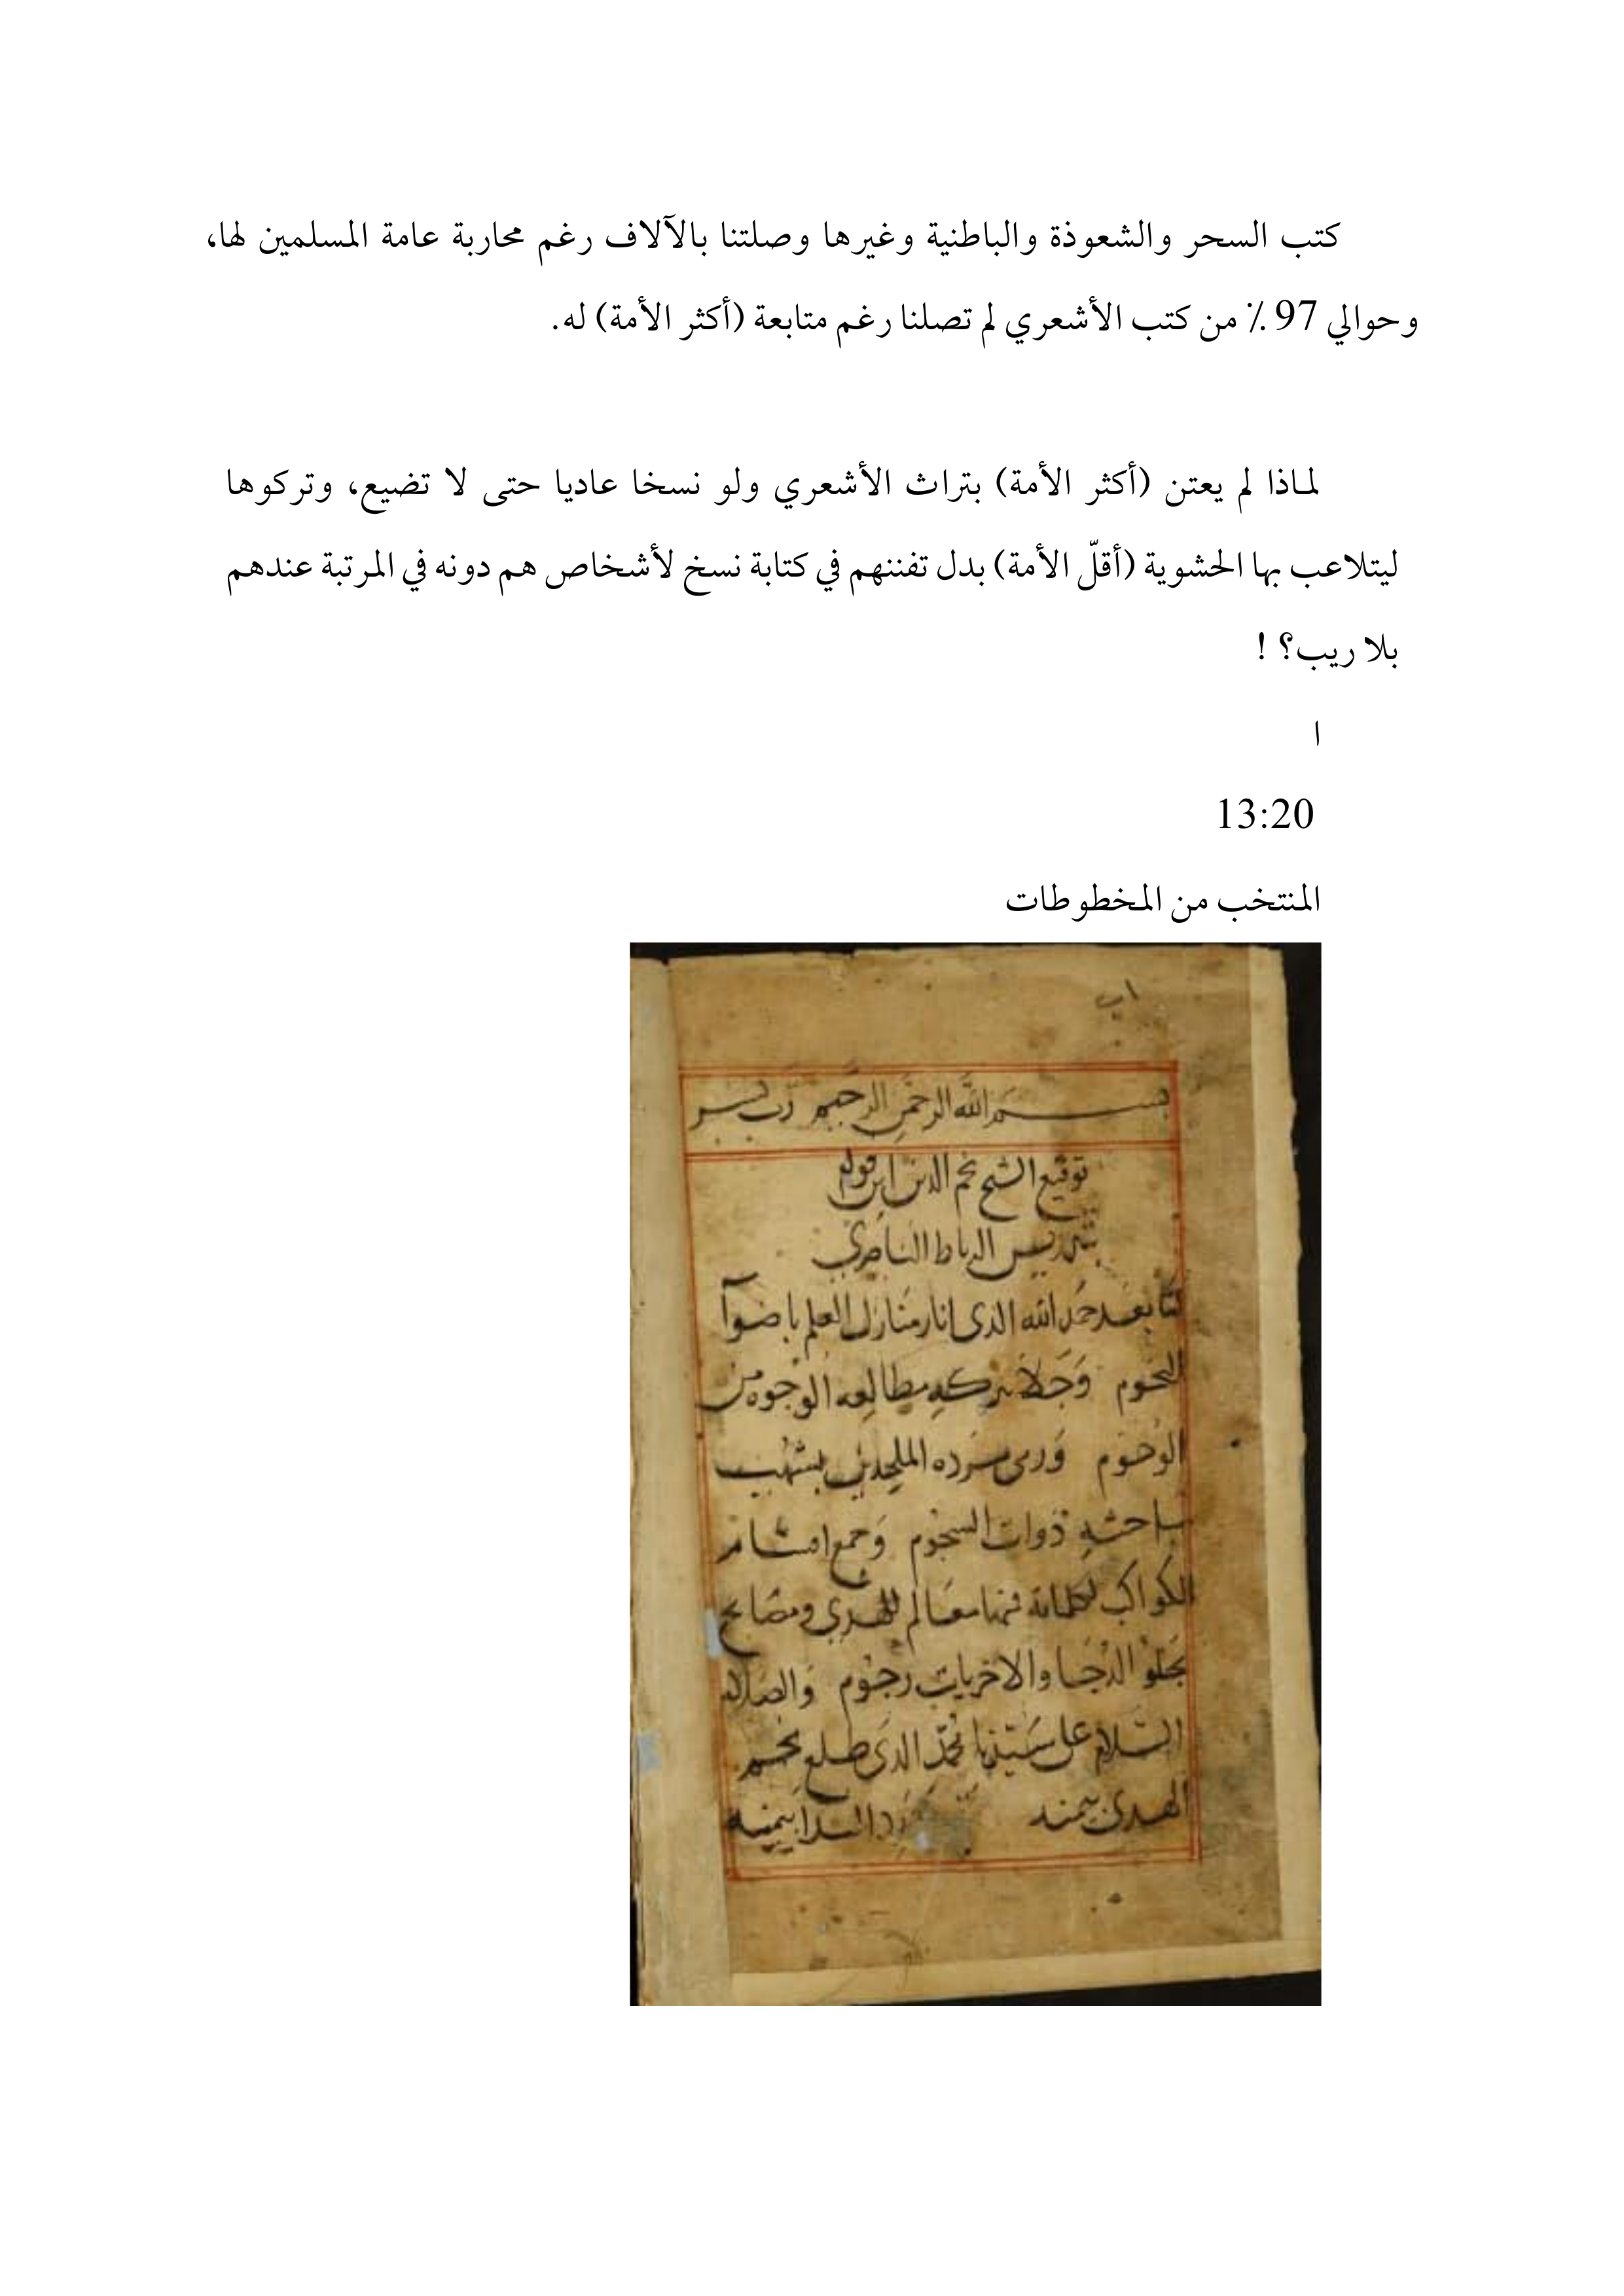 كتب السحر والشعوذة والباطنية وغيرها وصلتنا بالآلاف رغم محاربة عامة المسلمين لها،
وحوالي 97 ٪ من كتب الأشعري لم تصلنا رغم متابعة (أكثر الأمة) له.
لماذا لم يعتن (أكثر الأمة) بتراث الأشعري ولو نسخا عاديا حتى لا تضيع، وتركوها
ليتلاعب بها الحشوية (أقلّ الأمة) بدل تفننهم في كتابة نسخ لأشخاص هم دونه في المرتبة عندهم
بلا ريب؟ !
ا
13:20
المنتخب من المخطوطات
بسم الله الرحمن الرحيم رب يسر
توقيع الشيخ نجم الدين ابن
بتدريس الرباط الناصري
بعد حمد الله الذي انار منازل العلم باضوآ
النجوم وجلا مطالعه الوجوه من
الوجوم الملحدين بشهب
مباحثه ذوات السجوم وجمع
الكواكب فمنها معالم للهدى ومصابح
تجلو الدجا والاخريات رجوم والصلاه
السلام على سيدنا محمد الذي طلع نجم
الهدى بيمنه